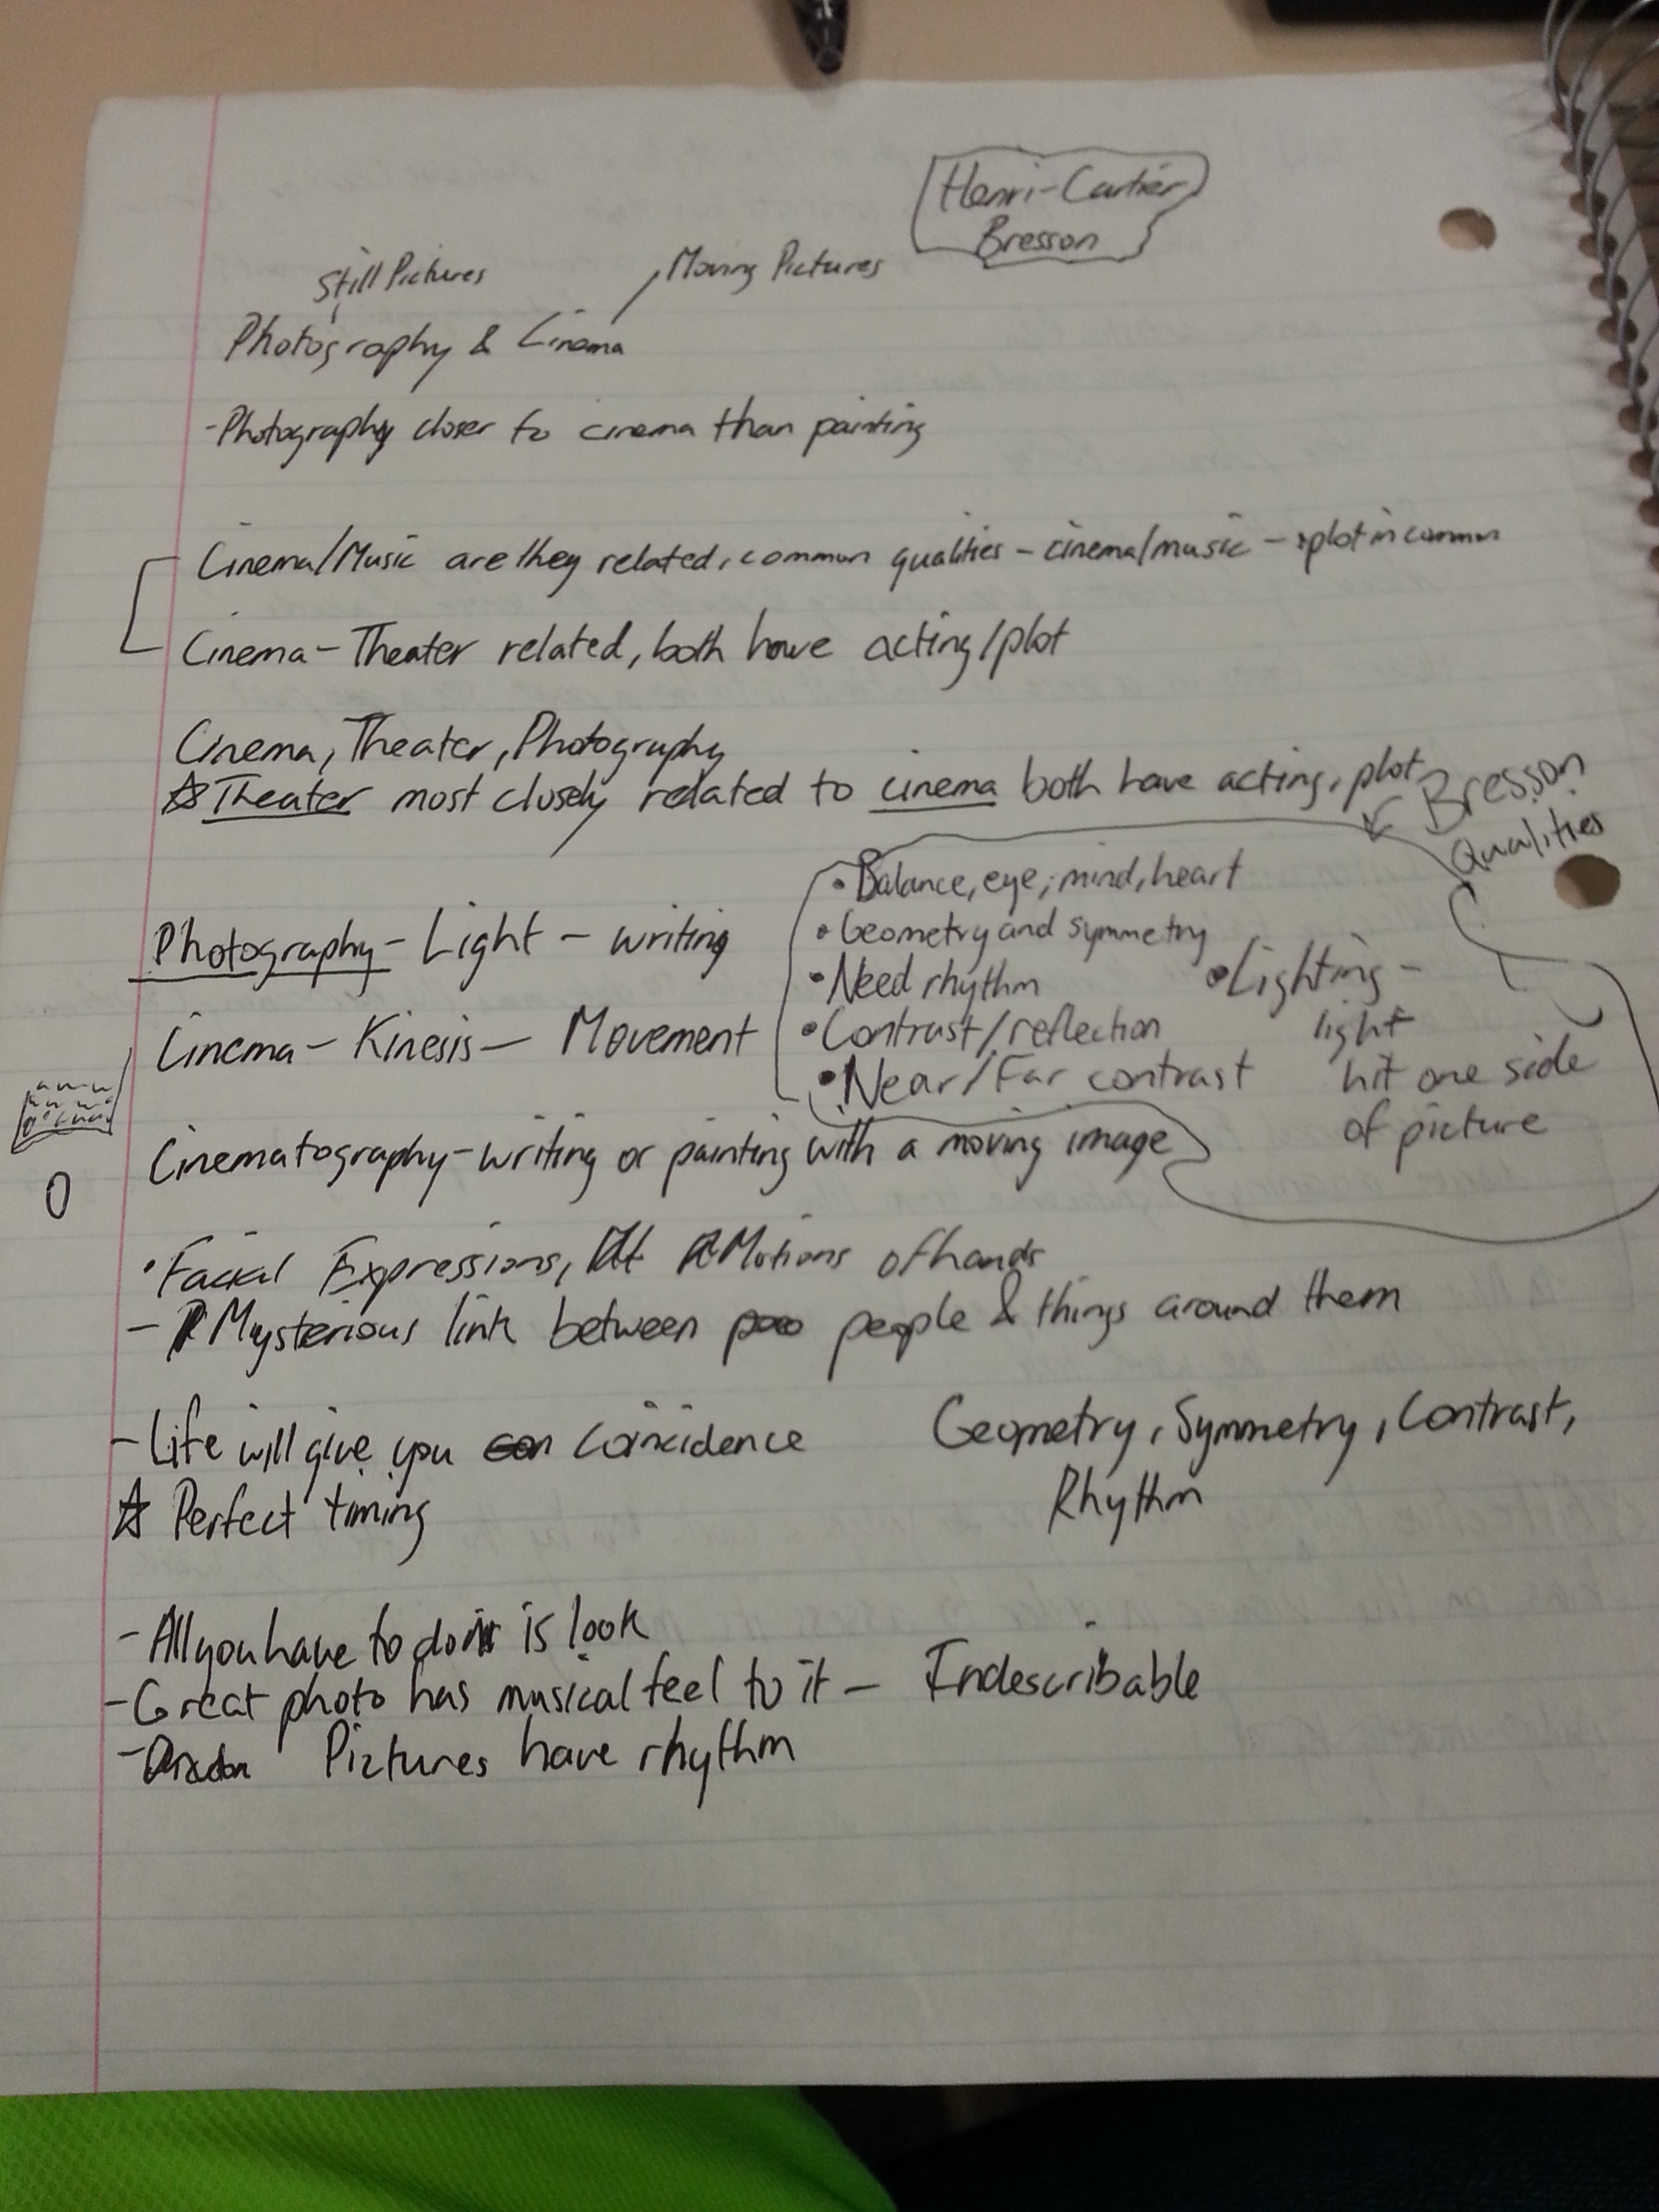 Henri-Cartier
Bresson
Still Pictures
Moving Pictures
Photography & Cinema
-Photography closer to cinema than painting
Cinema/Music are they related, common qualities - cinema/music - plot in common
Cinema - Theater related, both have acting/plot
Cinema, Theater, Photography
☆Theater most closely related to cinema both have acting, plot
Bresson
Qualities
• Balance, eye, mind, heart
• Geometry and symmetry
• Need rhythm
• Contrast/reflection
• Near/Far contrast
• Lighting -
light
hit one side
of picture
Photography - Light - writing
Cinema - Kinesis - Movement
Cinematography - writing or painting with a moving image
• Facial Expressions, Motions of hands
- Mysterious link between people & things around them
- Life will give you coincidence
☆ Perfect timing
Geometry, Symmetry, Contrast,
Rhythm
- All you have to do is look
- Great photo has musical feel to it - Indescribable
- Pictures have rhythm